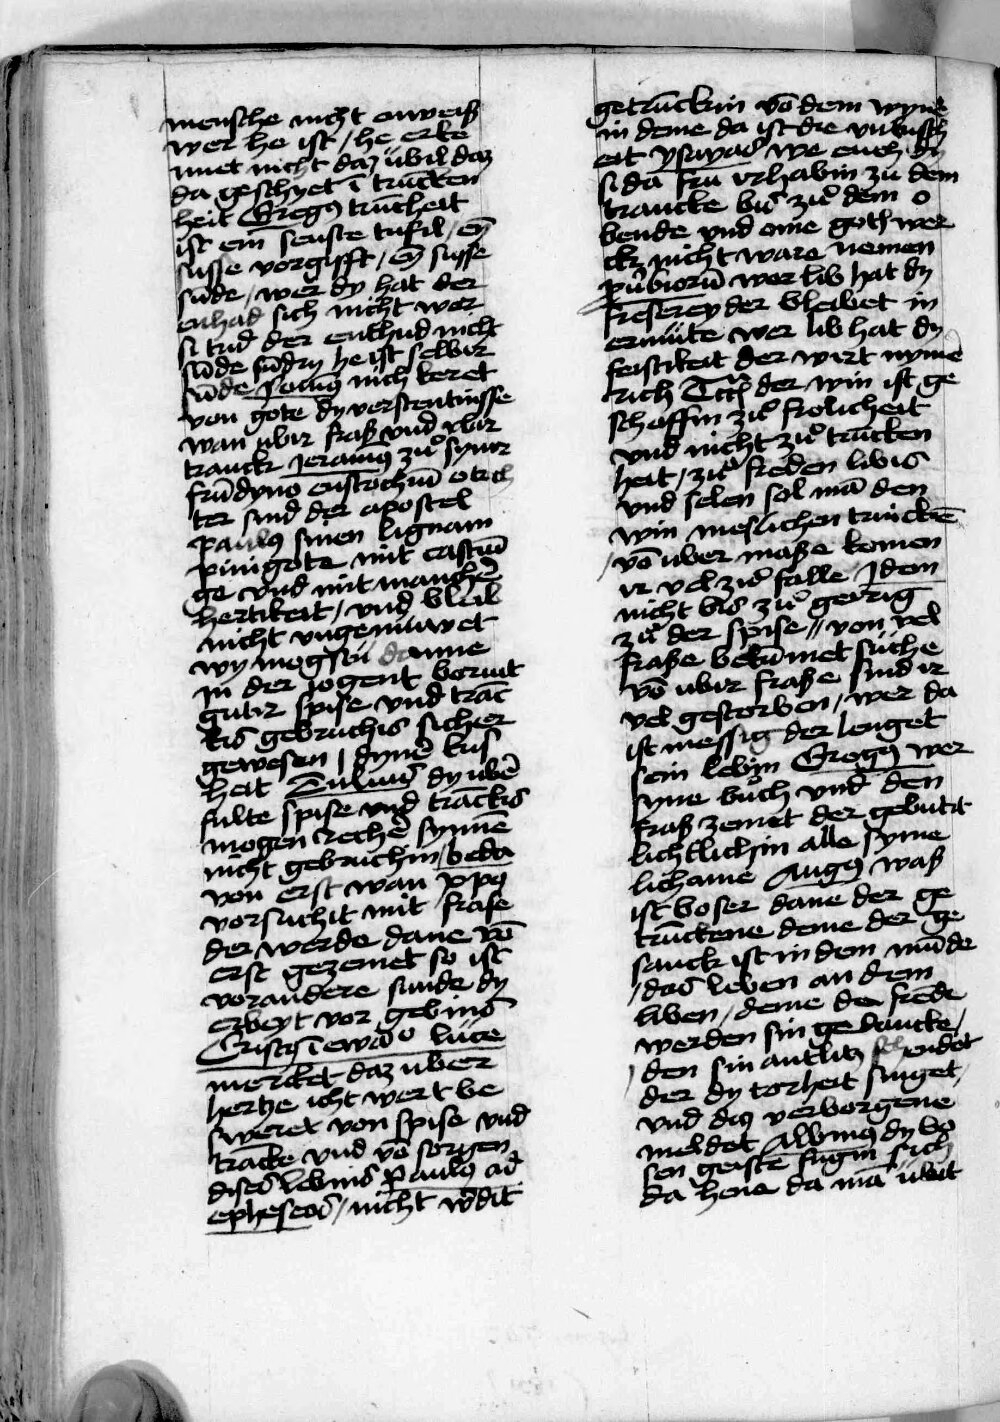 mensche nicht enweiß
wer he ist / he erke
nnet nicht daz übil daz
da geschyet ī truncken
heit Gregꝰ trūcheit
ist ein senfte tufil / Eȳ
susse vorgifft / Eȳ susse
sūde / wer dy hat der
enhad sich nicht wer
si tud der enthud nicht
sūde sūdrn he ist selbir
sūde
von gote dy verstentnisse
wan ubir fraß und ubir
tranck Jeronimꝰ zuͦ syner
frūdyno eustochiū
ter sind der apostel
Paulꝰ sinen lignam
pinigete mit castiū
ge und mit mancher
hertikeit / und bleib
nicht ungenuwet
wy mogstu danne
in der jogent
gutir spise und trāc
kis gebruchis sicher
gewesen / dyner kus
heit Tulius dy ubē
fulte spise und trāckis
mogen rechē synnē
nicht gebruchin / beda
von erst wan xp̄s
vorsuchit mit frase
der werde dane vō
erst gezemet so ist
vor andere sunde dy
erbeyt vor gebins
Cristꝰ ī ewāᵒ luce
mercket daz uwer
hertze icht wert be
sweret von spise und
trācke und vō sorgen
disis lebins Paulꝰ ad
epheseos / nicht w̄dit
getrūckin vō dem wyne
in deme da ist die unkusch
eit ysayas we euch dy
si da fru irhabin zu dem
trancke bis zuͦ dem o
bende und eine goth wer
ckz nicht ware nemen
pūbiorū wer lib hat dy
freserey der bleibet in
ermūte wer lib hat dy
feistikeit der wirt nymē
rich der win ist ge
schaffin zuͦ frolicheit
und nicht zuͦ trūcken
heit / zuͦ freden libis
und selen sol mā den
win meslichen trinckē
/ vō uber maße komen
ir vel zuͦ falle Idem
nicht bis zuͦ geirig
zuͦ der spise // von vel
fraße bekūmet suche
vō ubir fraße sind ir
vel gestorben / wer da
ist messig der lenget
sein lebin Gregꝰ wer
syne buch und den
fraß zemet der gebutit
lichtlichin alle syme
lichame Augꝰ waß
ist boser dane der ge
trūckene deme der ge
tranck ist in dem mūde
/ das leben an dem
liben / deme da frēde
werden sin gedancke /
/ den sin antlitz endet
der dy torheit singet /
und das verborgene
meldet Albinꝰ dy bo
sen geiste fugin sich
da hene da mā ubit